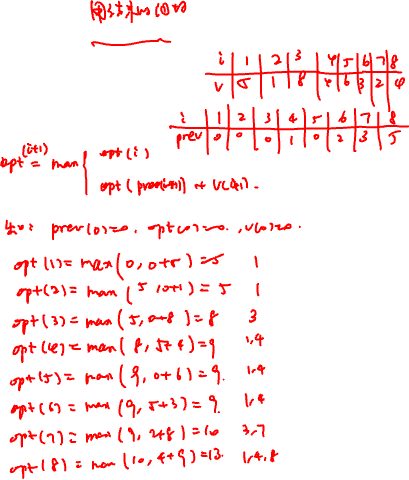 i 1 2 3 4 5 6 7 8
v 5 1 8 4 6 3 2 4
i 1 2 3 4 5 6 7 8
prev 0 0 0 1 0 2 3 5
opt(i+1) = max { opt(i)
opt(prev(i+1)) + v(i+1).
prev(0)=0, opt(0)=0, v(0)=0.
opt(1)=max(0, 0+5)=5 1
opt(2)=max(5, 0+1)=5 1
opt(3)=max(5, 0+8)=8 3
opt(4)=max(8, 5+4)=9 1,4
opt(5)=max(9, 0+6)=9. 1,4
opt(6)=max(9, 5+3)=9. 1,4
opt(7)=max(9, 2+8)=10 3,7
opt(8)=max(10, 4+9)=13. 1,4,8